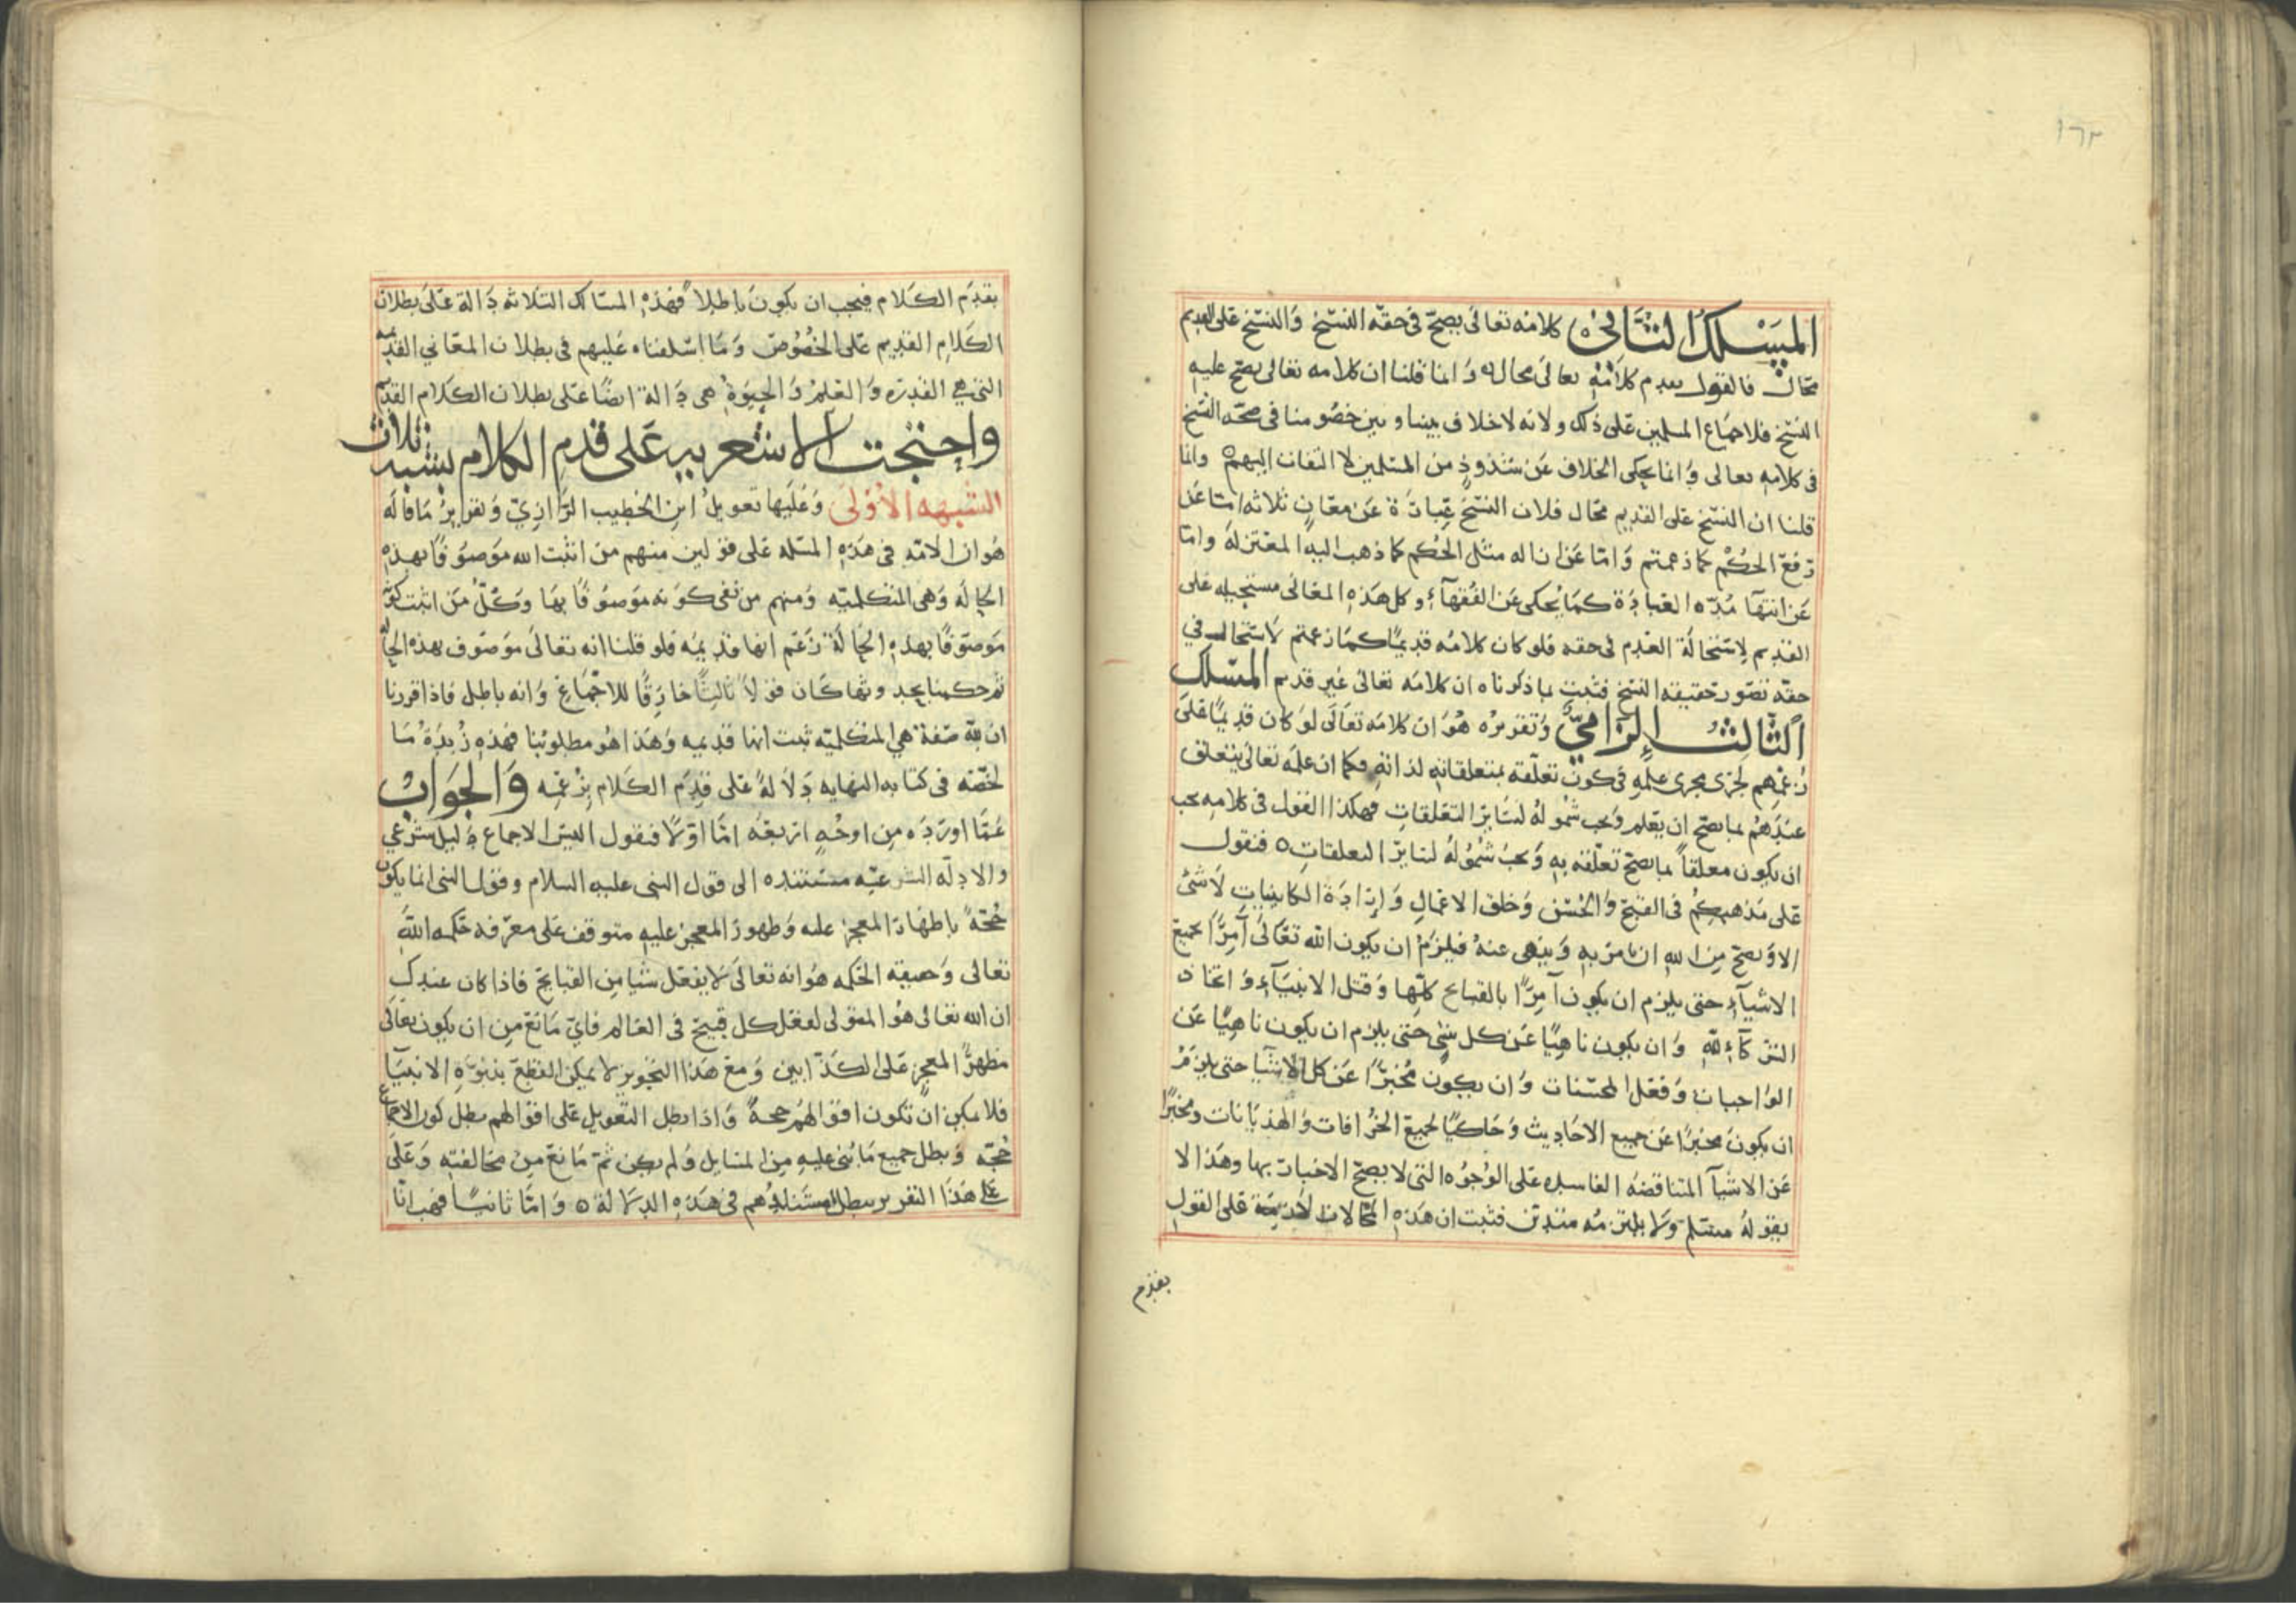 ١٦٣
المسلك الثاني ه كلامه تعالى يصح في حقه النسخ والنسخ على القديم
محال فالقول بقدم كلامه تعالى محال ه وانما قلنا ان كلامه تعالى يصح عليه
النسخ فلاجماع المسلمين على ذلك ولانه لا خلاف بيننا وبين خصومنا في صحة النسخ
في كلامه تعالى وانما يحكى الخلاف عن شذوذ من المسلمين لا التفات اليهم ه وانما
قلنا ان النسخ على القديم محال فلان النسخ عبارة عن معان ثلاثه اما عن
رفع الحكم كما زعمتم واما عن ازاله مثل الحكم كما ذهب اليه المعتزله واما
عن انتهآ مده العبادة كما يحكى عن الفقهآء وكل هذه المعاني مستحيله على
القديم لاستحالة العدم في حقه فلو كان كلامه قديمًا كما زعمتم لاستحال في
حقه تصور حقيقه النسخ فثبت بما ذكرناه ان كلامه تعالى غير قديم المسلك
الثالث الزاميّ وتقريره هو ان كلامه تعالى لو كان قديمًا على
زعمهم لجرى مجرى علمه في كون تعلقه بمتعلقاته لذاته وكما ان علمه تعالى يتعلق
عندهم بما يصح ان يعلم ويجب شموله لسائر التعلقات فهكذا القول في كلامه يجب
ان يكون معلقاً بما يصح تعلقه به ويجب شموله لسائر التعلقات ه فنقول
على مذهبكم في القبح والحسن وخلق الاعمال وارادة الكاينات لا شئ
الا ويصح من الله ان يامر به وينهى عنه فيلزم ان يكون الله تعالى آمرًا بجميع
الاشيآء حتى يلزم ان يكون آمرًا بالقبايح كلها وقتل الانبيآء واتخاذ
الشركآء لله وان يكون ناهيًا عن كل شئ حتى يلزم ان يكون ناهيًا عن
الواجبات وفعل المحسنات وان يكون مخبرًا عن كل الاشيآ حتى يلزم
ان يكون مخبرًا عن جميع الاحاديث وحاكيًا لجميع الخرافات والهذيانات ومخبرًا
عن الاشيآ المتناقضه الفاسده على الوجوه التي لا يصح الاخبار بها وهذا لا
يقوله مسلم ولا يلتزمه متدين فثبت ان هذه المحالات لازمة على القول
بقدم
بقدم الكلام فيجب ان يكون باطلاً فهذه المسالك الثلاثه دالة على بطلان
الكلام القديم على الخصوص وما اسلفناه عليهم في بطلان المعاني القديمه
التي هي القدره والعلم والحيوة هي دالة ايضًا على بطلان الكلام القديم
واحتجت الاشعريه على قدم الكلام بشبه ثلاث
الشبهه الاولى وعليها تعويل ابن الخطيب الرازي وتقرير ما قاله
هو ان الامه في هذه المسله على قولين منهم من اثبت الله موصوفًا بهذه
الحاله وهي المتكلميه ومنهم من نفى كونه موصوفًا بها وكل من اثبت كونه
موصوفًا بهذه الحالة زعم انها قديمه فلو قلنا انه تعالى موصوف بهذه الحاله
ثم حكمنا بحدوثها كان قولاً ثالثًا خارقًا للاجماع وانه باطل فاذا قررنا
ان لله صفة هي المتكلميه ثبت انها قديمه وهذا هو مطلوبنا فهذه زبدة ما
لخصه في كتابه النهايه دلالة على قدم الكلام بزعمه والجواب
عما اورده من اوجه اربعه اما اولًا فنقول اليس الاجماع دليل شرعي
والادلّه الشرعيّه مستنده الى قول النبي عليه السلام وقول النبي انما يكون
حجة باظهار المعجز عليه وظهور المعجز عليه متوقف على معرفه حكمه الله
تعالى وحقيقه الحكمه هو انه تعالى لا يفعل شيا من القبايح فاذا كان عندك
ان الله تعالى هو المتولى لفعل كل قبيح في العالم فاي مانع من ان يكون تعالى
مظهرًا المعجز على الكذابين ومع هذا التجويز لا يمكن القطع بنبوة الانبيا
فلا يمكن ان تكون اقوالهم حجة واذا بطل التعويل على اقوالهم بطل كون الاجماع
حجه وبطل جميع ما بُني عليه من المسايل ولم يكن ثم مانع من مخالفته وعلى
هذا التقرير يبطل مستندهم في هذه الدلالة ه واما ثانيًا فهب انا